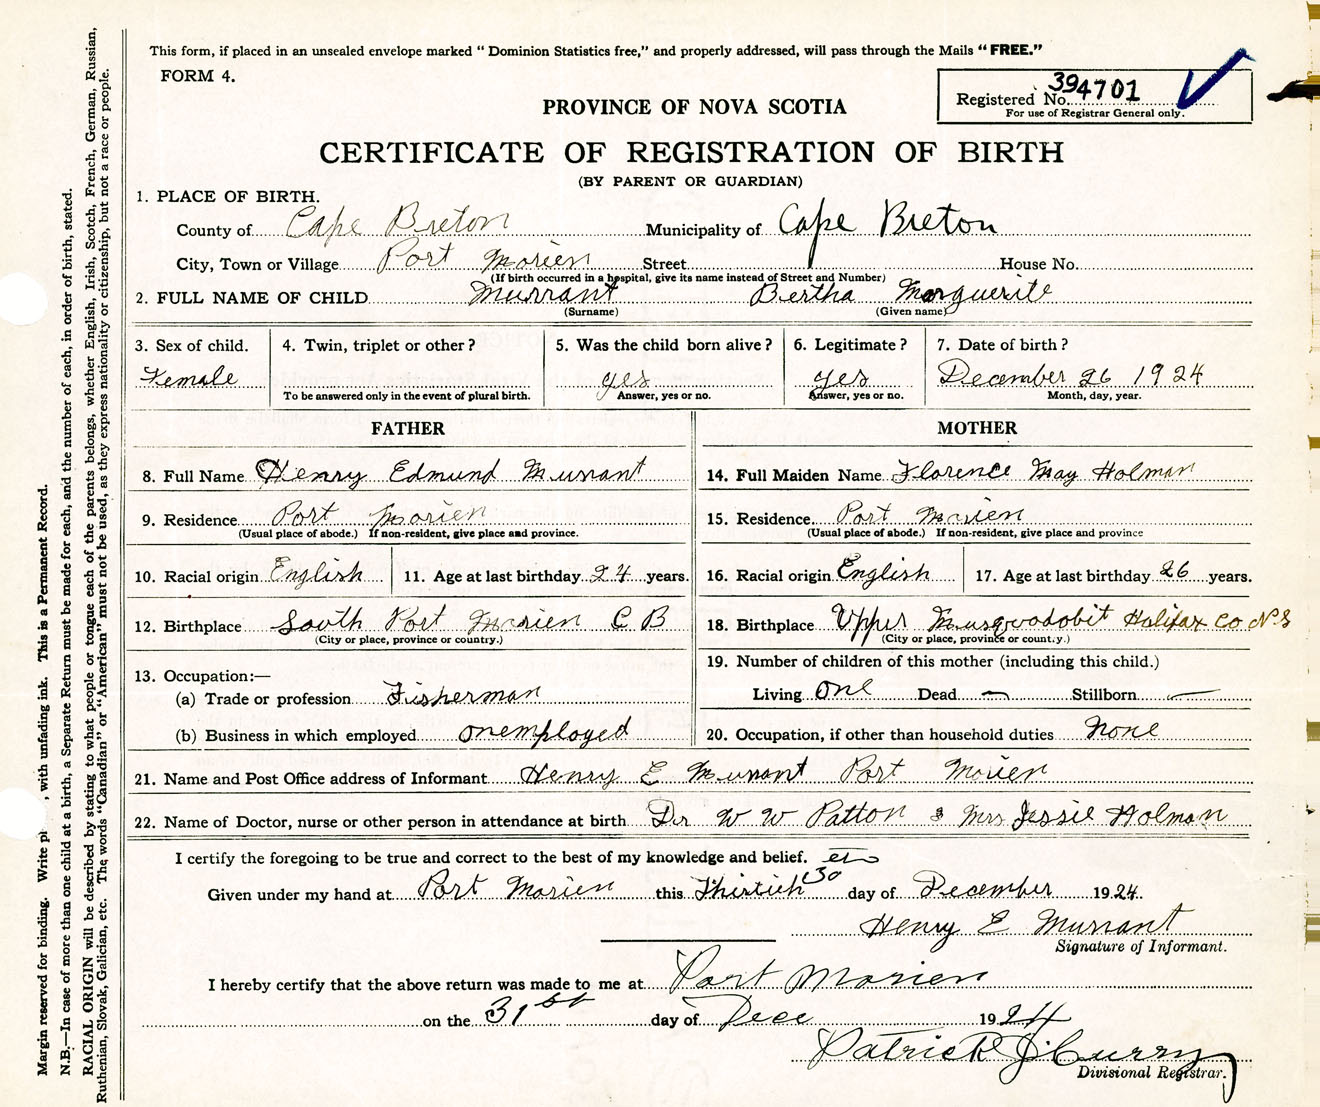 This form, if placed in an unsealed envelope marked “Dominion Statistics free,” and properly addressed, will pass through the Mails “FREE.”
FORM 4.
Registered No. 394701
For use of Registrar General only.
PROVINCE OF NOVA SCOTIA
CERTIFICATE OF REGISTRATION OF BIRTH
(BY PARENT OR GUARDIAN)
1. PLACE OF BIRTH.
County of Cape Breton Municipality of Cape Breton
City, Town or Village Port Morien Street House No.
(If birth occurred in a hospital, give its name instead of Street and Number)
2. FULL NAME OF CHILD Murrant Bertha Marguerite
(Surname) (Given name)
3. Sex of child. 4. Twin, triplet or other? 5. Was the child born alive? 6. Legitimate? 7. Date of birth?
Female yes yes December 26 1924
To be answered only in the event of plural birth. Answer, yes or no. Answer, yes or no. Month, day, year.
FATHER MOTHER
8. Full Name Henry Edmund Murrant 14. Full Maiden Name Florence May Holman
9. Residence Port Morien 15. Residence. Port Morien
(Usual place of abode.) If non-resident, give place and province. (Usual place of abode.) If non-resident, give place and province
10. Racial origin English 11. Age at last birthday 24 years. 16. Racial origin English 17. Age at last birthday 26 years.
12. Birthplace South Port Morien C B 18. Birthplace Upper Musquodobit Halifax Co N.S
(City or place, province or country.) (City or place, province or county.)
13. Occupation:— 19. Number of children of this mother (including this child.)
(a) Trade or profession Fisherman Living one Dead — Stillborn —
(b) Business in which employed onemployed 20. Occupation, if other than household duties None
21. Name and Post Office address of Informant Henry E Murrant Port Morien
22. Name of Doctor, nurse or other person in attendance at birth Dr W W Patton & Mrs Jessie Holman
I certify the foregoing to be true and correct to the best of my knowledge and belief.
Given under my hand at Port Morien this Thirtieh 30 day of December 1924.
Henry E Murrant
Signature of Informant.
I hereby certify that the above return was made to me at Port Morien
on the 31st day of Dece 1924
Patrick J. Curry
Divisional Registrar.
Margin reserved for binding. Write , with unfading ink. This is a Permanent Record.
N.B.—In case of more than one child at a birth, a Separate Return must be made for each, and the number of each, in order of birth, stated.
RACIAL ORIGIN will be described by stating to what people or tongue each of the parents belongs, whether English, Irish, Scotch, French, German, Russian,
Ruthenian, Slovak, Galician, etc. The words “Canadian” or “American” must not be used, as they express nationality or citizenship, but not a race or people.